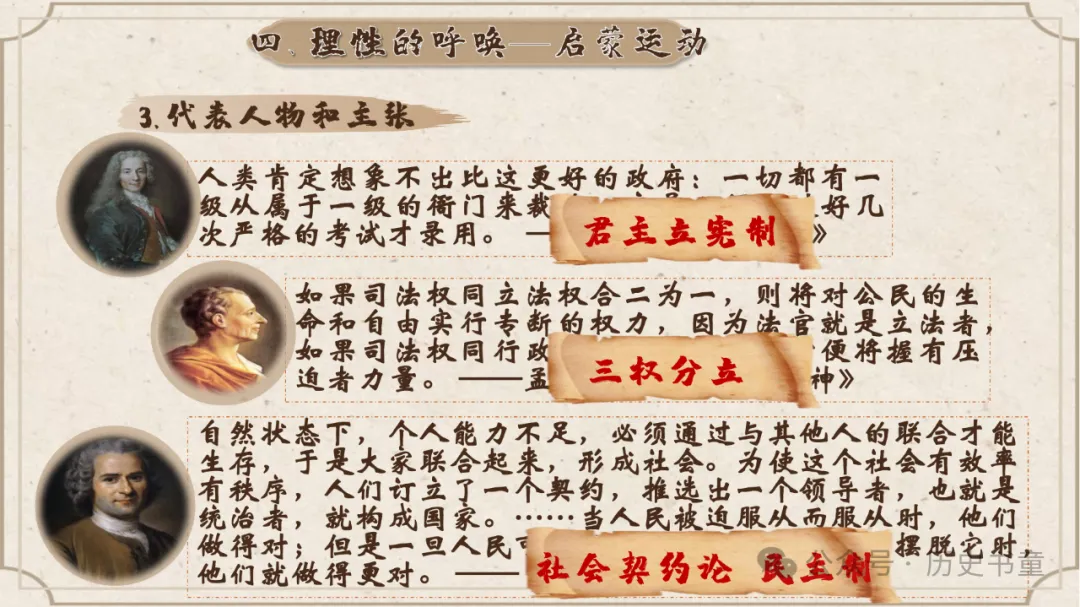 四、理性的呼唤—启蒙运动
3.代表人物和主张
人类肯定想象不出比这更好的政府：一切都有一
级从属于一级的衙门来裁 好几
次严格的考试才录用。 — 》
君主立宪制
如果司法权同立法权合二为一，则将对公民的生
命和自由实行专断的权力，因为法官就是立法者，
如果司法权同行政 便将握有压
迫者力量。——孟 神》
三权分立
自然状态下，个人能力不足，必须通过与其他人的联合才能
生存，于是大家联合起来，形成社会。为使这个社会有效率
有秩序，人们订立了一个契约，推选出一个领导者，也就是
统治者，就构成国家。……当人民被迫服从而服从时，他们
做得对；但是一旦人民可 摆脱它时，
他们就做得更对。——
社会契约论 民主制
公众号·历史书童